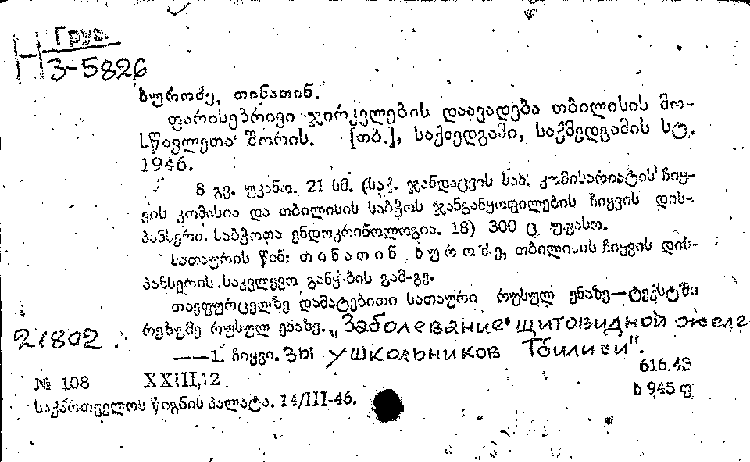 Груз.
3-5826
ხუროძე, თინათინ.
ფარისებრივი ჯირკვლების დაავადება თბილისის მო-
სწავლეთა შორის. [თბ.], საქმედგამი, საქმედგამის სტ.
1946.
8 გვ. უკანო. 21 სმ. (საქ. ჯანდაცვის სახ. კომისარიატის ჩიყ-
ვის კომისია და თბილისის საბჭოს ჯანგანყოფილების ჩიყვის დის-
პანსერი. საბჭოთა ენდოკრინოლოგია. 18) 300 ც. უფასო.
სათაურის წინ: თინათინ ხუროძე, თბილისის ჩიყვის დის-
პანსერის საკვლევო განყ-ბის გამ-გე.
თავფურცელზე დამატებითი სათაური რუსულ ენაზე—ტექსტში
რეზუმე რუსულ ენაზე. „Заболевание щитовидной желе
21802. —1. ჩიყვი. зы у школьников Тбилиси".
616.43
№ 108 XXIII,12 ხ 945 ფ
საქართველოს წიგნის პალატა. 14/III-46.